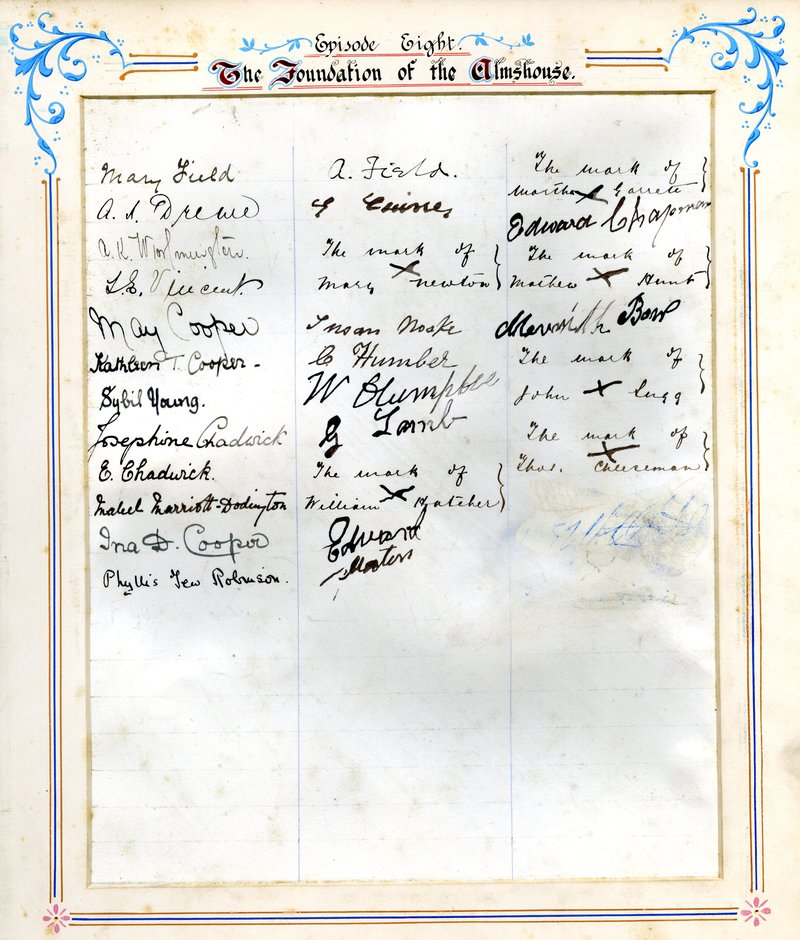 Episode Eight.
The Foundation of the Almshouse.
Mary Field
A. A. Drewe
A. K. Worthington.
L. E. Vincent.
May Cooper
Kathleen T. Cooper -
Sybil Young.
Josephine Chadwick
E. Chadwick.
Mabel Marriott-Dodington
Ina D. Cooper
Phyllis Tew Robinson.
A. Field.
The mark of
Mary X Newton
Susan Noake
C Humber
W Plumptre
G Lamb
The mark of
William X Hatcher
Edward
Masters
The mark of
Martha X Garrett
Edward Chapman
The mark of
Mathew X Hunt
The mark of
John X Sugg
The mark of
Thos. X Cheeseman